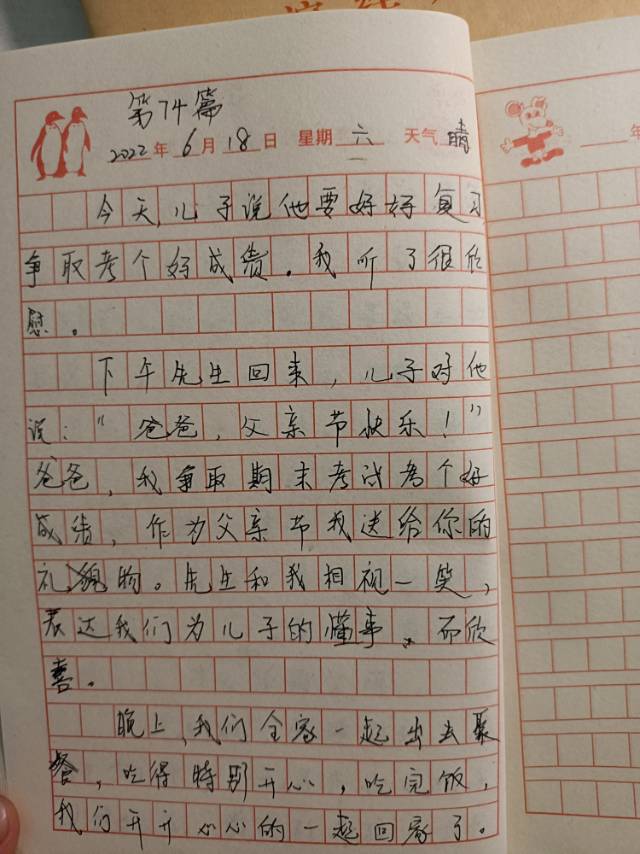 第74篇
2022年6月18日 星期六 天气晴
今天,儿子说他要好好复习
争取考个好成绩。我听了很欣
慰。
下午先生回来,儿子对他
说:“爸爸,父亲节快乐!”
爸爸,我争取期末考试考个好
成绩,作为父亲节我送给你的
礼物。先生和我相视一笑,
表达我们为儿子的懂事、而欣
喜。
晚上,我们全家一起出去聚
餐,吃得特别开心,吃完饭,
我们开开心心的一起回家了。
年